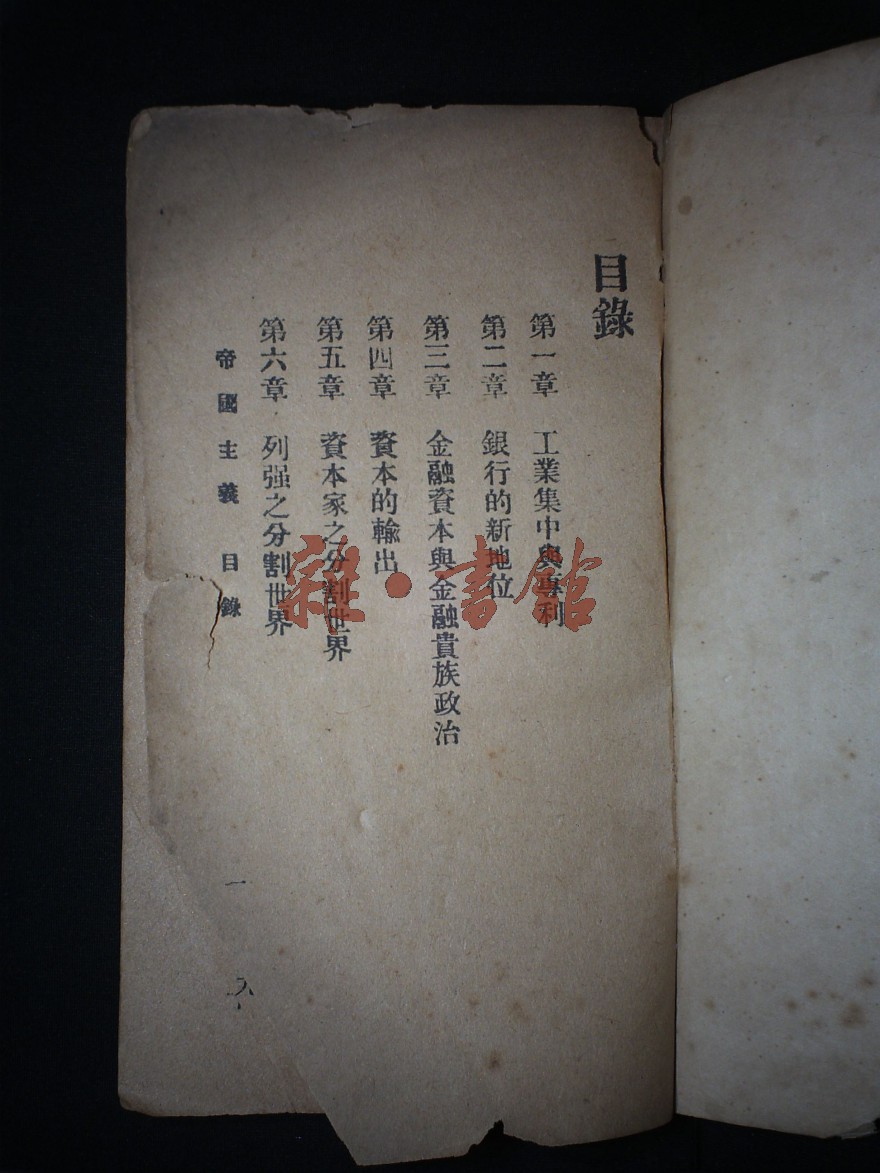 目錄
第一章 工業集中與專利
第二章 銀行的新地位
第三章 金融資本與金融貴族政治
第四章 資本的輸出
第五章 資本家之分割世界
第六章 列强之分割世界
帝國主義 目錄
一
雜·書館